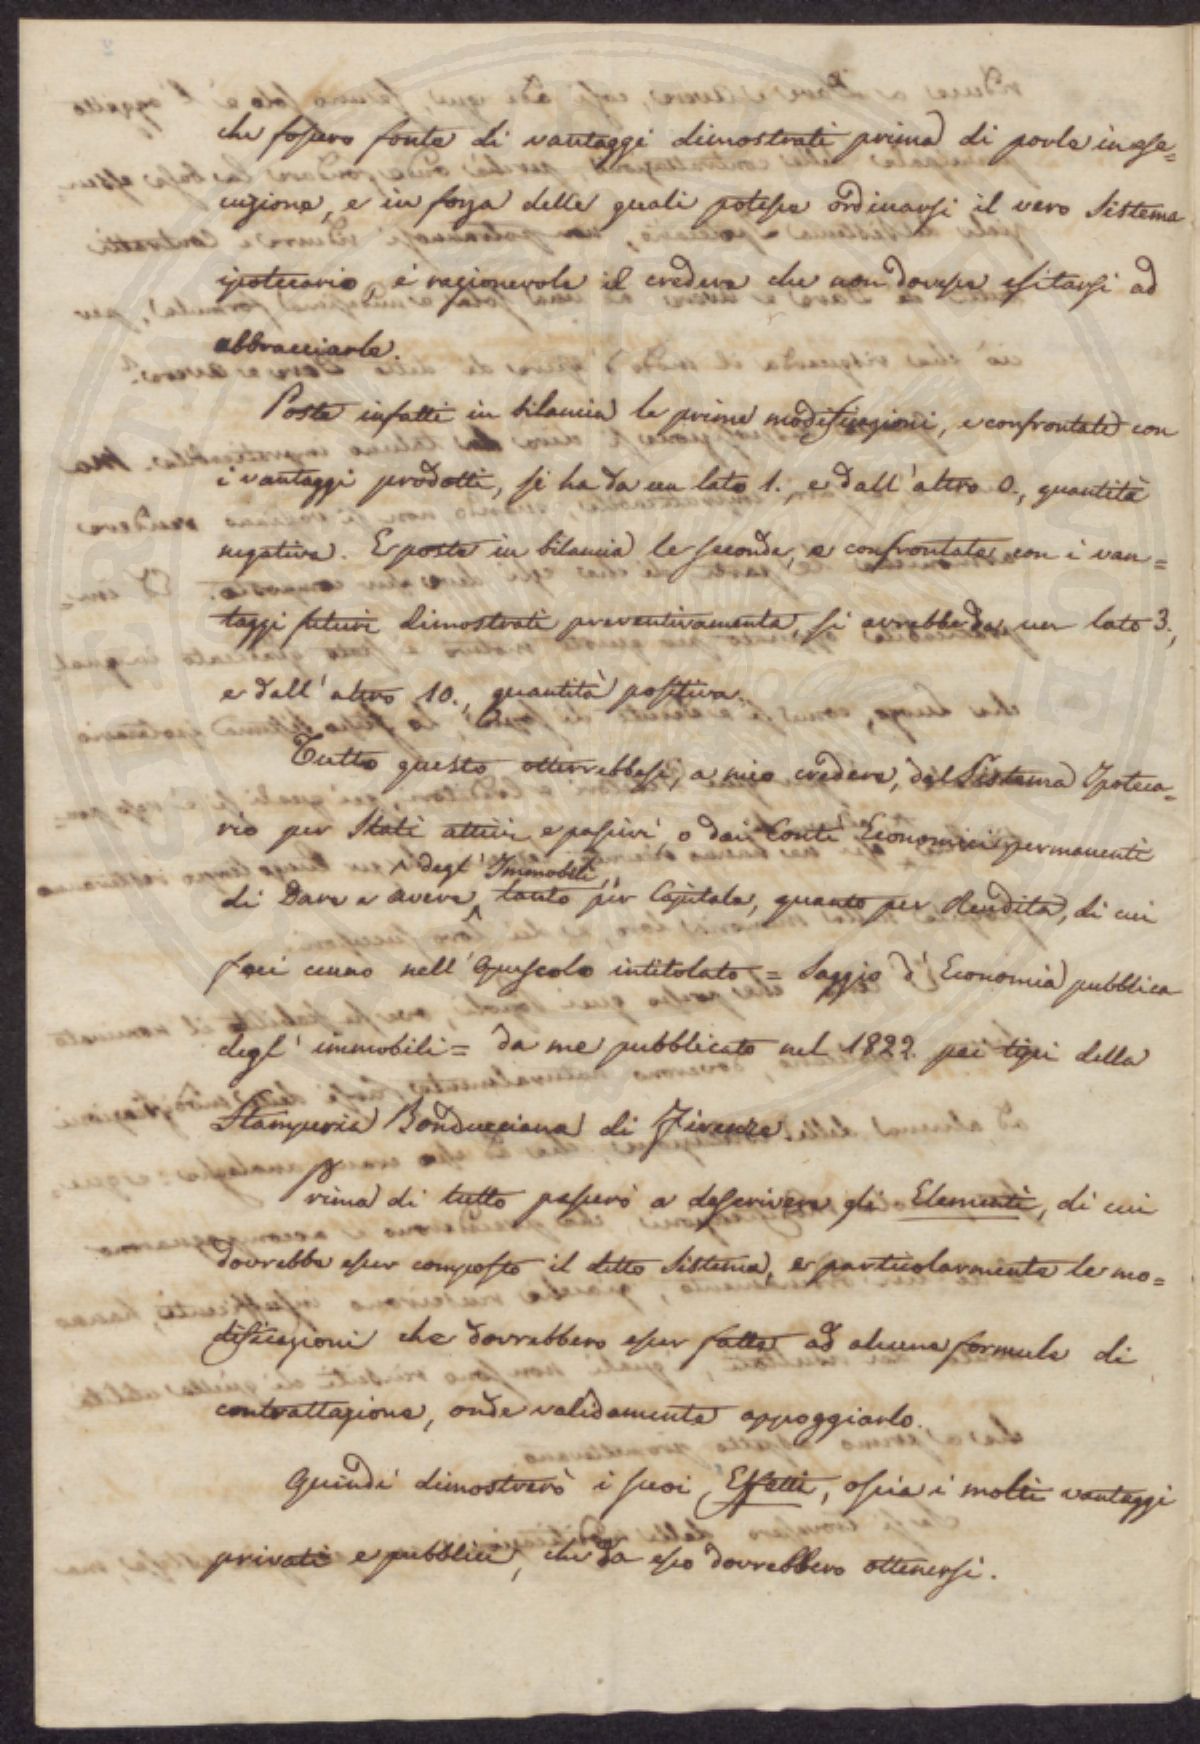 che fossero fonte di vantaggi dimostrati prima di porle in ese=
cuzione, e in forza delle quali potesse ordinarsi il vero Sistema
ipotecario, è ragionevole il credere che non dovesse esitarsi ad
abbracciarle.
Poste infatti in bilancia le prime modificazioni, e confrontate con
i vantaggi prodotti, si ha da un lato 1., e dall'altro 0., quantità
negativa. E poste in bilancia le seconde, e confrontate con i van=
taggi futuri dimostrati preventivamente, si avrebbe da un lato 3.,
e dall'altro 10., quantità positiva.
Tutto questo otterrebbesi, a mio credere, dal Sistema Ipoteca=
rio per Stati attivi e passivi, o dai Conti Economici permanenti
degl' Immobili,
di Dare e avere, tanto per Capitale, quanto per Rendita, di cui
feci cenno nell'Opuscolo intitolato = Saggio d'Economia pubblica
degl' immobili = da me pubblicato nel 1822. pei tipi della
Stamperia Bonducciana di Firenze.
Prima di tutto passerò a descrivere gli Elementi, di cui
dovrebbe esser composto il detto Sistema, e particolarmente le mo=
dificazioni che dovrebbero esser fatte ad alcune formule di
contrattazione, onde validamente appoggiarlo.
Quindi dimostrerò i suoi Effetti, ossia i molti vantaggi
privati e pubblici, che da esso dovrebbero ottenersi.